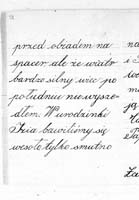 przed obiadem na
spacer ale że wiatr
bardzo silny więc po
południu nie wysze-
dłem. W urodzinki
Izia bawiliśmy się
wesoło tylko smutno